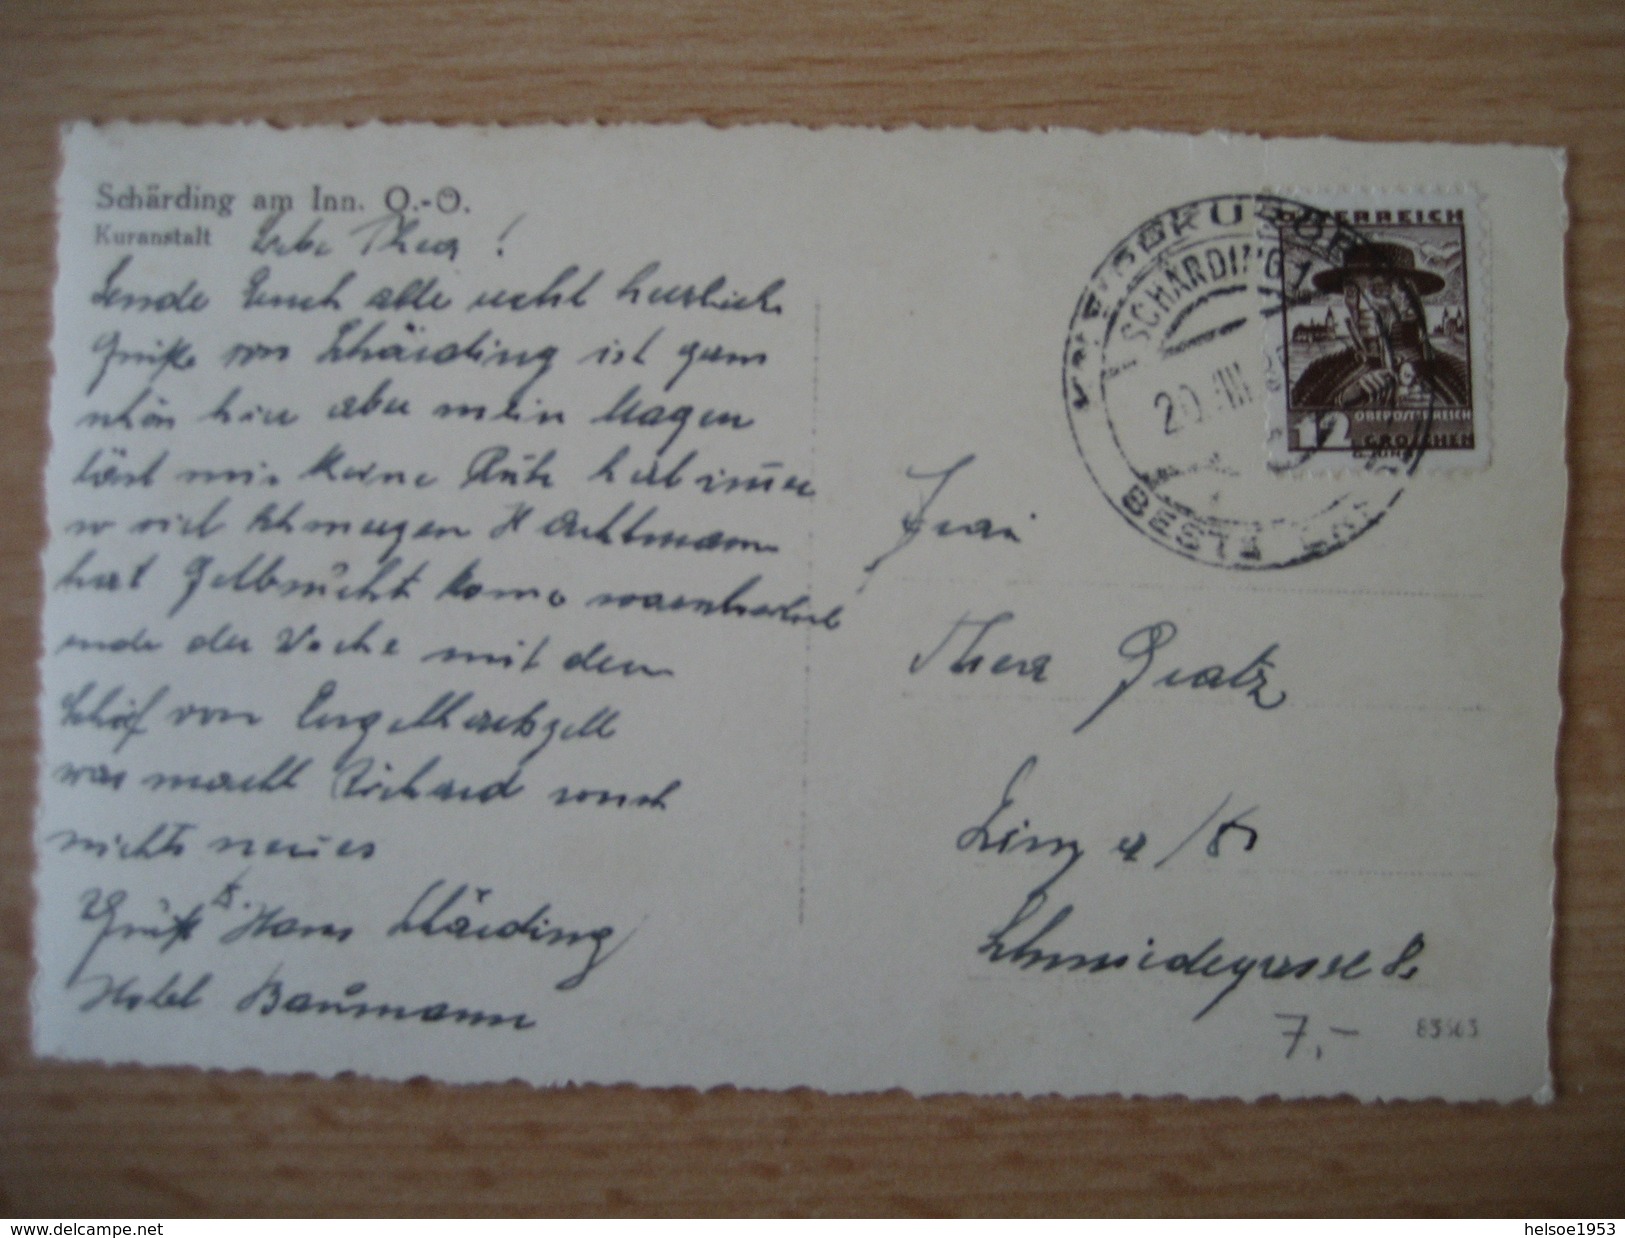 Schärding am Inn. O.-Ö.
Kuranstalt
Liebe Thea!
Sende Euch alle recht herzlich
Grüße von Schärding ist ganz
schön hier aber mein Magen
läst mir keine Ruhe hab immer
so viel Schmerzen H
hat komme
ende der Woche mit dem
Schiff von Engelhartszell
was macht Richard sonst
nichts neues
Grüße Hans Schärding
Hotel Baumann
KNEIPPKURORT
SCHÄRDING 1
20.VIII.
BESTE
ÖSTERREICH
OBERÖSTERREICH
12 GROSCHEN
Frau
Thea Gratz
Linz a/D
Schmiedegasse 8
7,-
83563
delcampe.net
helsoe1953